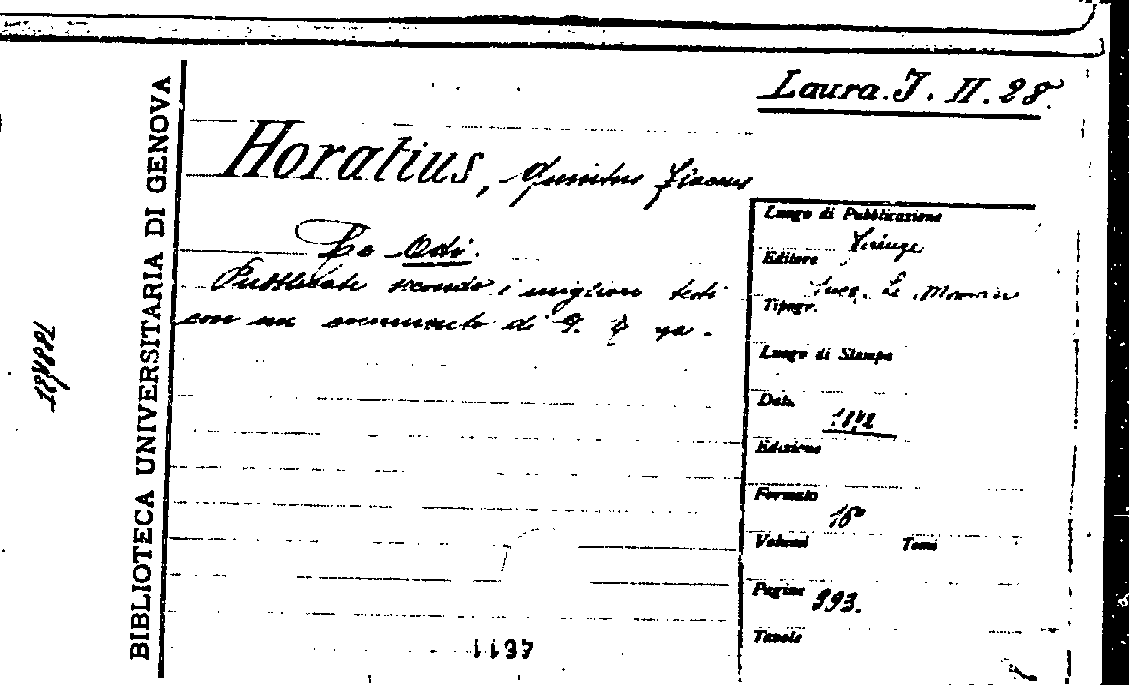 Laura. J. II. 28.
BIBLIOTECA UNIVERSITARIA DI GENOVA
Horatius, Quintus Flaccus
Le Odi.
Pubblicate secondo i migliori testi
con un commento di
Luogo di Pubblicazione
Firenze
Editore
Succ. Le Monnier
Tipogr.
Luogo di Stampa
Data
Edizione
Formato
16°
Volumi Tomi
Pagine 393.
Tavole
4611